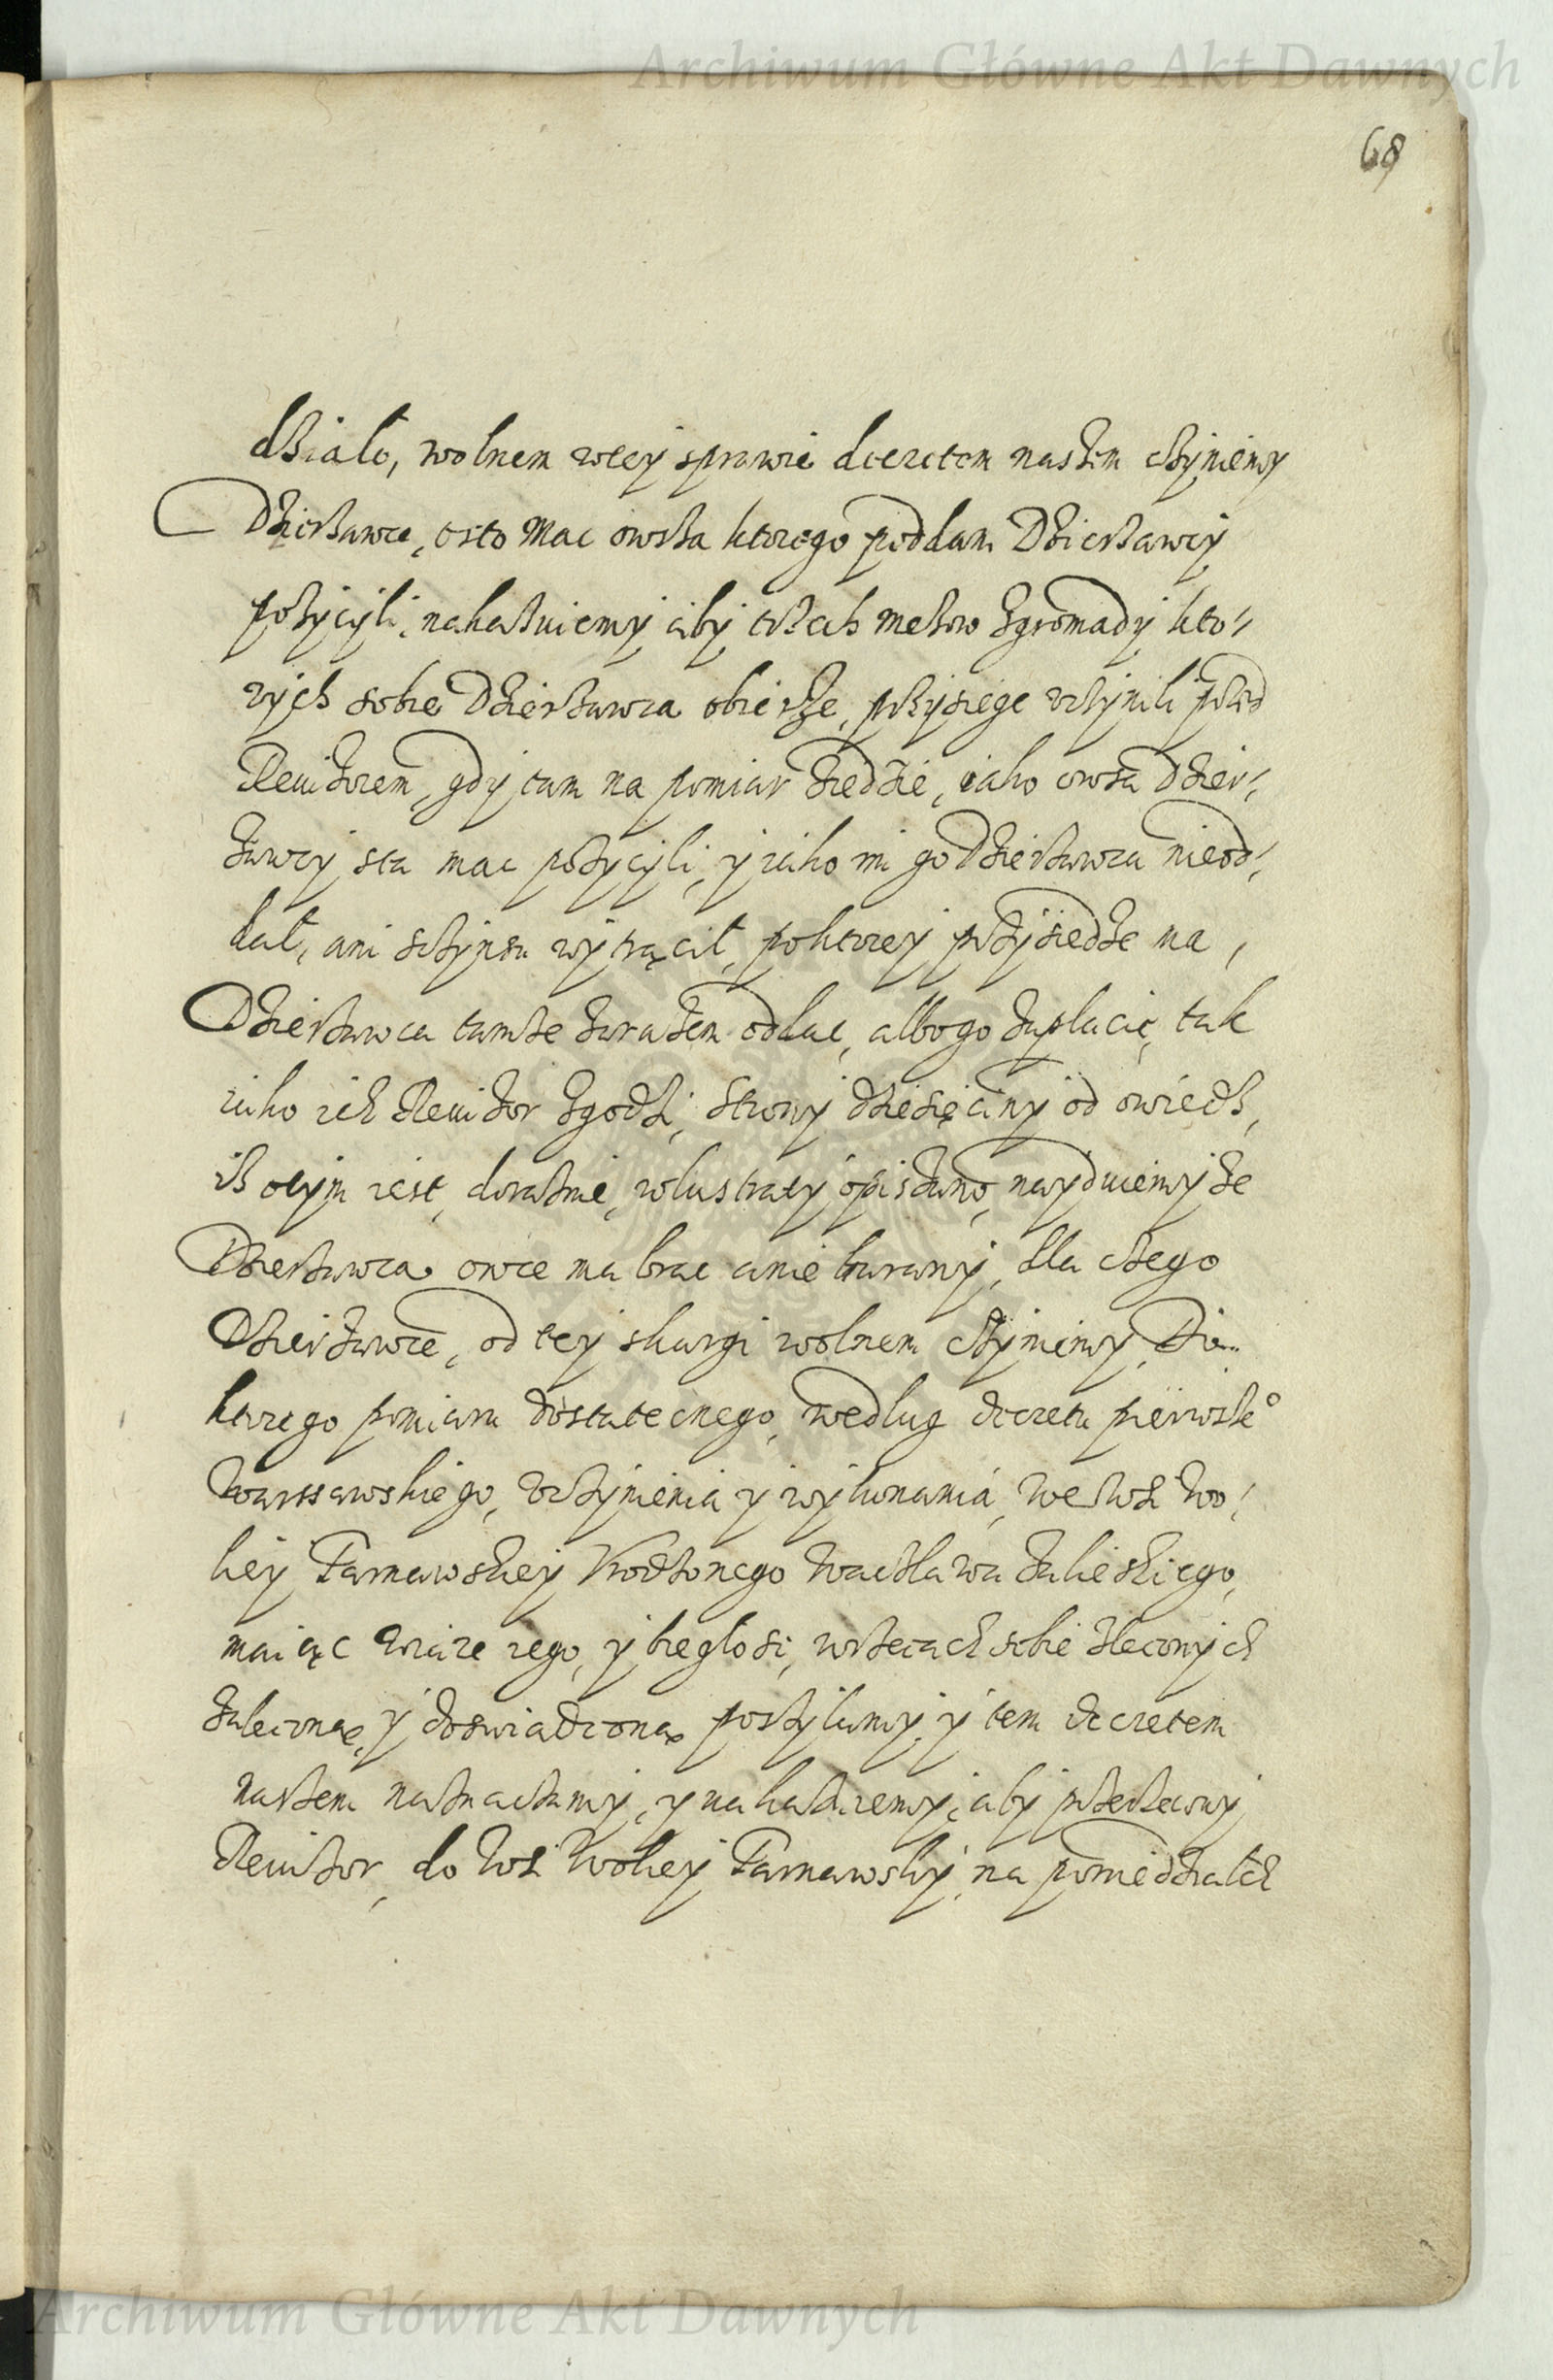 Archiwum Główne Akt Dawnych
68
działo, wolnem wtey sprawie decretem naszem czyniemy
Dzierzawce, osto mac owsza ktorego poddani Dzierzawcy
pozycyli, nakazuiemy aby trzech mezow zgromady kto-
rych sobie Dzierzawca obierze, przysiege vczynili przed
Revizorem, gdy tam na pomiar ziedzie, iako owsa dzier-
zawcy sta mac pozycyli, y iako im go Dzierzawca nieod-
dał, ani sczynsu wytrącił, poktorey przysiedze ma,
Dzierzawca tamze zarazem oddac, albo go zaplacic, tak
iako ich Revizor zgodzi, Strony dziesięciny od owiedz,
iz otym iest, doraznie, wlustraty opisano, naydziemy ze
Dzierzawca owce ma brac anie barany, dla czego
Dzierzawce, od tey skargi wolnem czyniemy, Dla
ktorego pomiaru dostatecnego, według decretu pierwsze°
Warssawskiego, vczynienia y wykonania, we wsi Wo-
ley Tarnawskey Vrodzonego Wacława Zaleskiego,
maiąc wiare iego, y biegłosi, wrzecach sobie zleconych
zalecone, y doswiadcona posylamy, y tem decretem
naszem naznaczamy, y nakazuiemy, aby przerzecony
Revizor, do wsi Woley Tarnawsky, na poniedziałek
Archiwum Główne Akt Dawnych